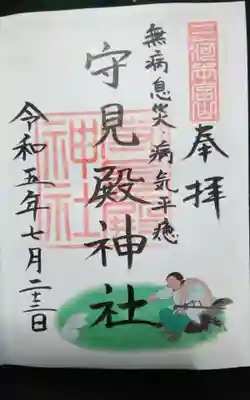 奉拝
無病息災・病気平癒
守見殿神社
令和五年七月二十二日
守見殿神社